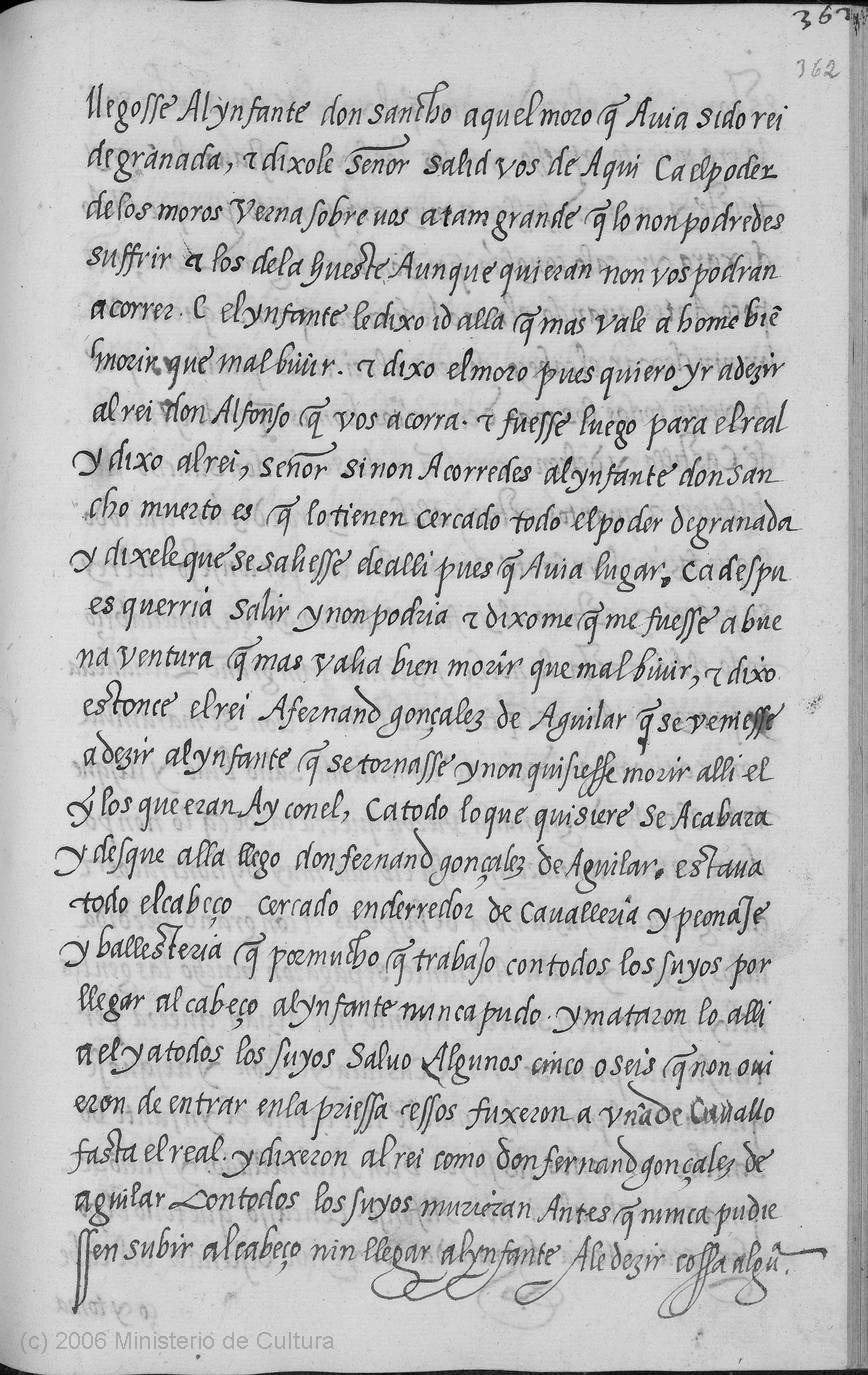 362
362
llegosse Al ynfante don sancho aquel moro q̃ Auia sido rei
de granada, τ dixole señor salid vos de Aqui Ca el poder
de los moros Verna sobre uos atam grande q̃ lo non podredes
suffrir τ los de la hueste Aunque quieran non vos podran
acorrer. C el ynfante le dixo id alla q̃ mas vale a home biẽ
morir que mal biuir. τ dixo el moro pues quiero yr a dezir
al rei don Alfonso q̃ vos acorra. τ fuesse luego para el real
y dixo al rei, señor si non Acorredes al ynfante don san
cho muerto es q̃ lo tienen cercado todo el poder de granada
y dixele que se saliesse de alli pues q̃ Auia lugar, ca despu
es querria salir y non podria τ dixo me q̃ me fuesse a bue
na ventura q̃ mas valia bien morir que mal biuir, τ dixo
estonce el rei A fernand gonçalez de Aguilar q̃ se veniesse
a dezir al ynfante q̃ se tornasse y non quisiesse morir alli el
y los que eran Ay con el, Ca todo lo que quisiere se Acabara
y desque alla llego don fernand gonçalez de Aguilar, estaua
todo el cabeço cercado enderredor de Cavalleria y peonaje
y ballesteria q̃ por mucho q̃ trabajo con todos los suyos por
llegar al cabeço al ynfante nunca pudo. y mataron lo alli
a el y a todos los suyos Saluo Algunos cinco o seis q̃ non oui
eron de entrar en la priessa τ essos fuxeron a vña de Cauallo
fasta el real. y dixeron al rei como don fernand gonçalez de
aguilar Con todos los suyos murieran Antes q̃ nunca pudie
ssen subir al cabeço nin llegar al ynfante A le dezir cossa algũ.
(c) 2006 Ministerio de Cultura